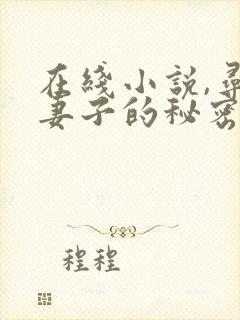 在綫小説,尋
妻子的秘密
程程